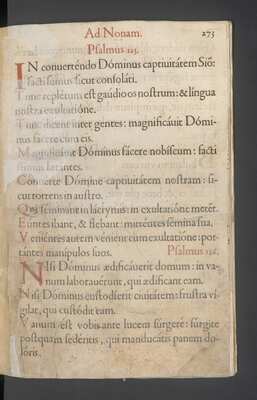 Ad Nonam. 273
Psalmus 125.
IN conuerténdo Dóminus captiuitátem Sió:
facti sumus sicut consoláti.
Tunc replétum est gaudio os nostrum: & lingua
nostra exultatióne.
Tunc dicent inter gentes: magnificáuit Dómi-
nus fácere cum eis.
Magnificáuit Dóminus fácere nobíscum: facti
sumus lætántes.
Conuérte Dómine captiuitátem nostram: si-
cut torrens in austro.
Qui séminant in lácrymis: in exultatióne metét.
Eúntes ibant, & flebant: mitténtes sémina sua.
Veniéntes autem vénient cum exultatióne: por-
tántes manípulos suos. Psalmus 126.
NIsi Dóminus ædificáuerit domum: in va-
num laborauérunt, qui ædíficant eam.
NIsi Dóminus custodíerit ciuitátem: frustra ví-
gilat, qui custódit eam.
Vanum est vobis ante lucem súrgere: súrgite
postquam sedéritis, qui manducátis panem do-
lóris.